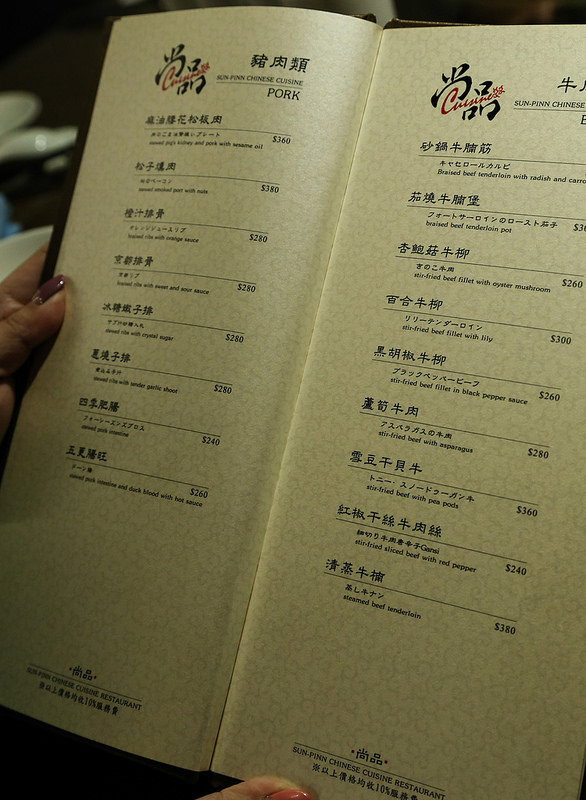 尚品
Cuisine
豬肉類
SUN-PINN CHINESE CUISINE
PORK
麻油腰花松板肉
$360
stewed pig's kidney and pork with sesame oil
松子燻肉
stewed smoked port with nuts
$380
橙汁排骨
オレンジジュースリブ
braised ribs with orange sauce
$280
京都排骨
京都リブ
braised ribs with sweet and sour sauce
$280
冰糖孅子排
stewed ribs with crystal sugar
$280
蔥燒子排
stewed ribs with tender garlic shoot
$280
四季肥腸
フォーシーズンズプロス
stewed pork intestine
$240
五更腸旺
stewed pork intestine and duck blood with hot sauce
$260
·尚品·
SUN-PINN CHINESE CUISINE RESTAURANT
※以上價格均收10%服務費
尚品
Cuisine
牛
SUN-PINN CHINESE CUISINE
砂鍋牛腩筋
キャセロールカルビ
Braised beef tenderloin with radish and carro
茄燒牛腩堡
フォートサーロインのロースト茄子
braised beef tenderloin pot
杏鮑菇牛柳
きのこ牛肉
stir-fried beef fillet with oyster mushroom
$260
百合牛柳
リリーテンダーロイン
stir-fried beef fillet with lily
$300
黑胡椒牛柳
ブラックペッパービーフ
stir-fried beef fillet in black pepper sauce
$260
蘆筍牛肉
アスパラガスの牛肉
stir-fried beef with asparagus
$280
雪豆干貝牛
トニー・スノードゥーガン牛
stir-fried beef with pea pods
$360
紅椒干絲牛肉絲
細切り牛肉唐辛子Gansi
stir-fried sliced beef with red pepper
$240
清蒸牛楠
蒸し牛ナン
steamed beef tenderloin
$380
·尚品·
SUN-PINN CHINESE CUISINE RESTAURANT
※以上價格均收10%服務費